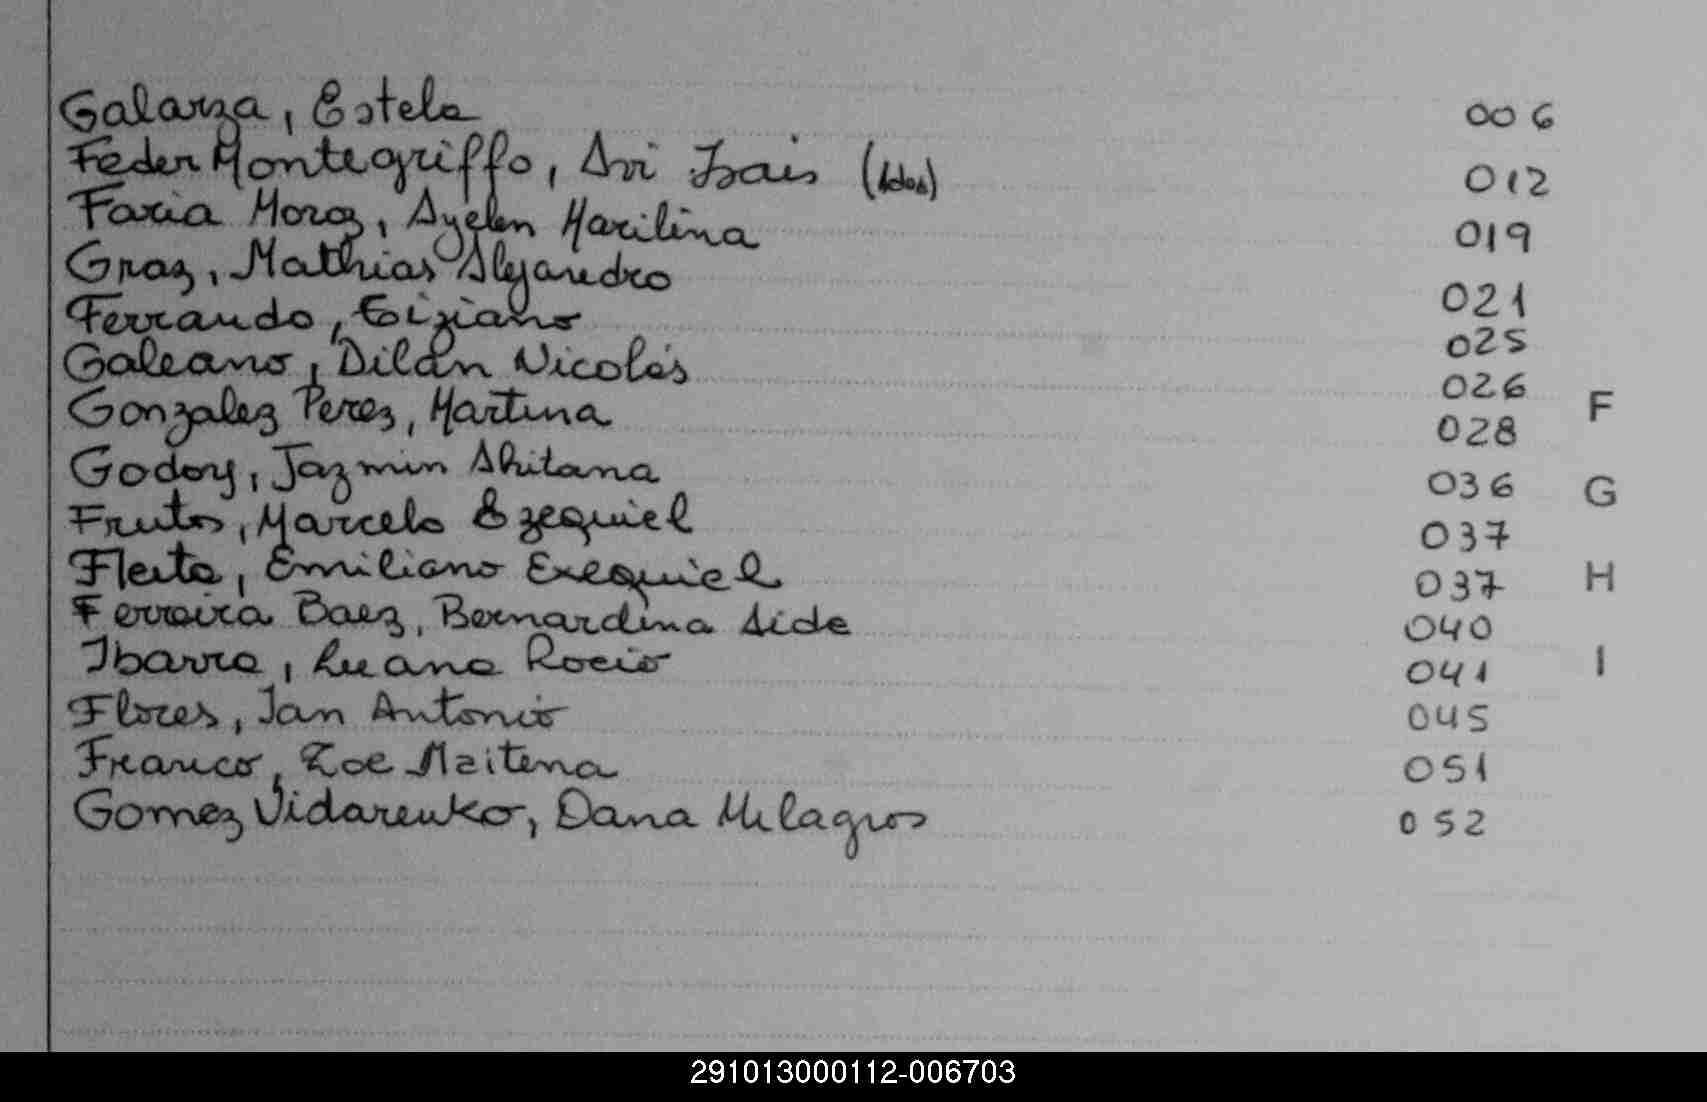 Galarza, Estela 006
Feder Montegriffo, Avi Isais (Ados) 012
Faria Moroz, Ayelen Marilina 019
Graz, Mathias Alejandro 021
Ferrando, Tiziano 025
Galeano, Dilán Nicolás 026
Gonzalez Perez, Martina 028
F
Godoy, Jazmin Ahitana 036
G
Frutos, Marcelo Ezequiel 037
Fleita, Emiliano Exequiel 037
H
Ferreira Baez, Bernardina Aide 040
Ibarra, Luana Rocio 041
I
Flores, Ian Antonio 045
Franco, Zoe Maitena 051
Gomez Vidarenko, Dana Milagros 052
291013000112-006703